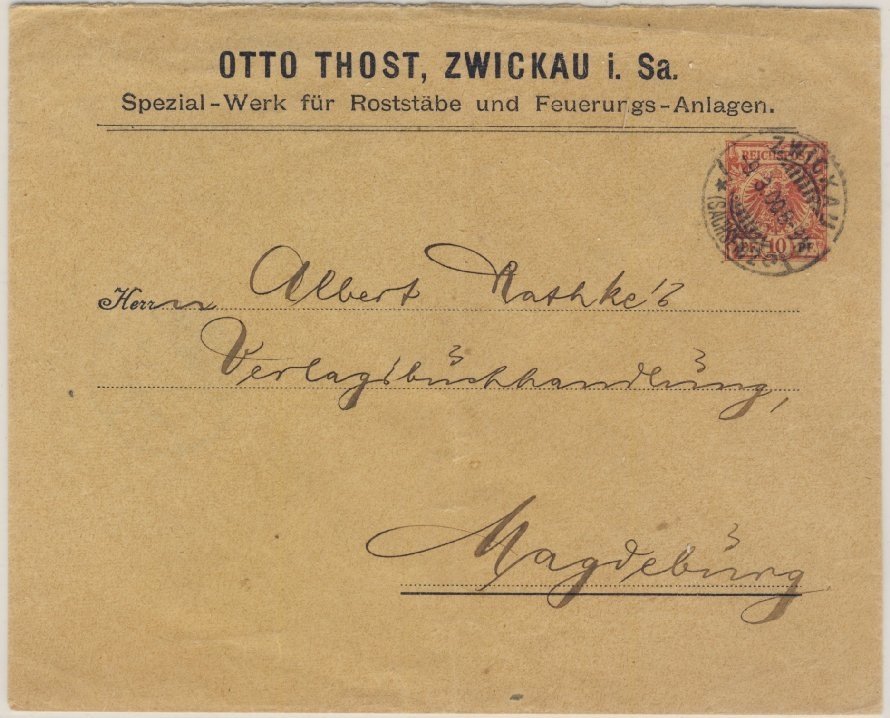 OTTO THOST, ZWICKAU i. Sa.
Spezial-Werk für Roststäbe und Feuerungs-Anlagen.
REICHSPOST
ZWICKAU
(SACHSEN)
10 PF
Herrn Albert Rathke's
Verlagsbuchhandlung,
Magdeburg